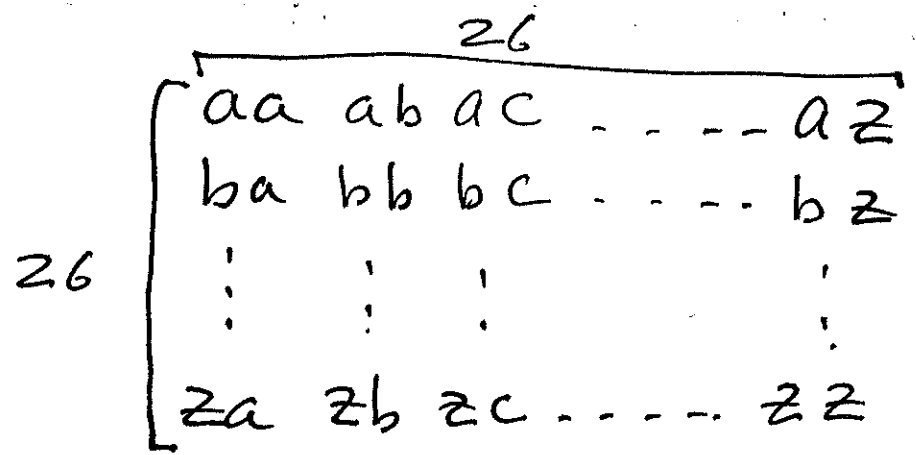 26
aa ab ac - - - - az
ba bb bc - - - - bz
26
⋮ ⋮ ⋮ ⋮
za zb zc - - - - - zz